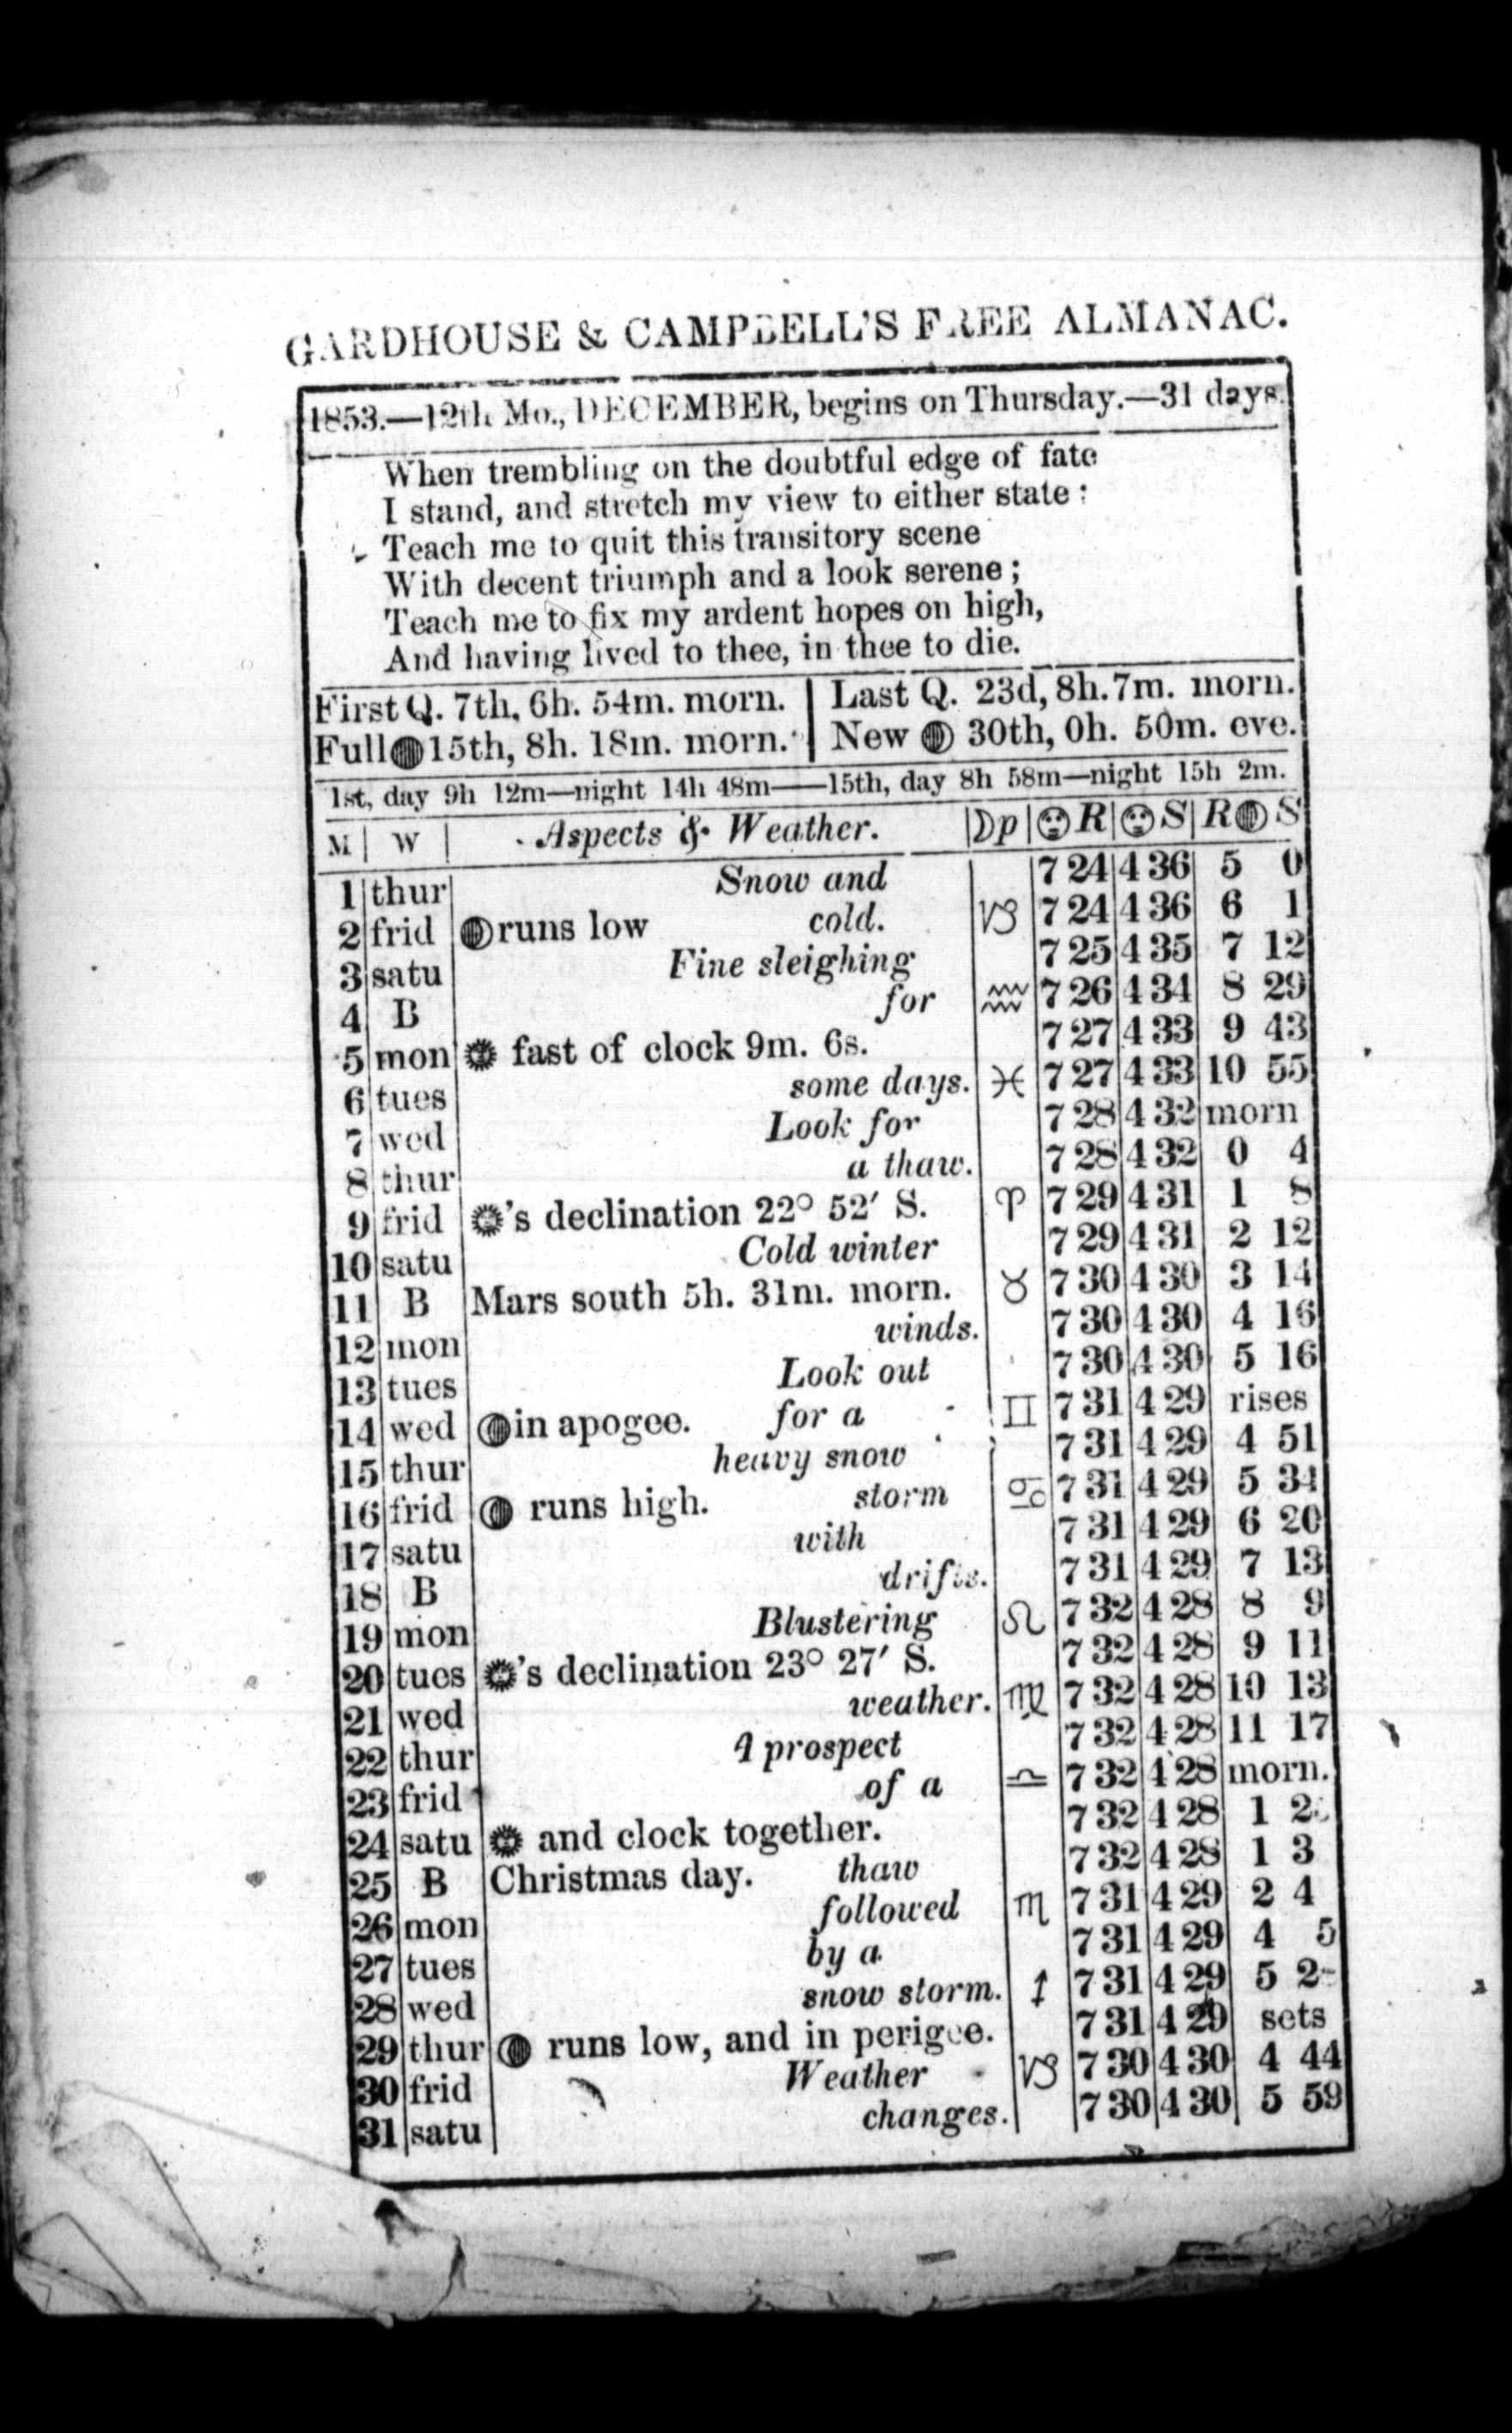 GARDHOUSE & CAMPBELL'S FREE ALMANAC.
1853.—12th Mo., DECEMBER, begins on Thursday.—31 days.
When trembling on the doubtful edge of fate
I stand, and stretch my view to either state:
Teach me to quit this transitory scene
With decent triumph and a look serene;
Teach me to fix my ardent hopes on high,
And having lived to thee, in thee to die.
First Q. 7th, 6h. 54m. morn. | Last Q. 23d, 8h. 7m. morn.
Full 15th, 8h. 18m. morn. | New 30th, 0h. 50m. eve.
1st, day 9h 12m—night 14h 48m——15th, day 8h 58m—night 15h 2m.
M | W | Aspects & Weather. | ☽p | R | S | R S
1 thur Snow and 7 24 4 36 5 0
2 frid runs low cold. ♑ 7 24 4 36 6 1
3 satu Fine sleighing 7 25 4 35 7 12
4 B for ♒ 7 26 4 34 8 29
5 mon fast of clock 9m. 6s. 7 27 4 33 9 43
6 tues some days. ♓ 7 27 4 33 10 55
7 wed Look for 7 28 4 32 morn
8 thur a thaw. 7 28 4 32 0 4
9 frid 's declination 22° 52′ S. ♈ 7 29 4 31 1 8
10 satu Cold winter 7 29 4 31 2 12
11 B Mars south 5h. 31m. morn. ♉ 7 30 4 30 3 14
12 mon winds. 7 30 4 30 4 16
13 tues Look out 7 30 4 30 5 16
14 wed in apogee. for a ♊ 7 31 4 29 rises
15 thur heavy snow 7 31 4 29 4 51
16 frid runs high. storm ♋ 7 31 4 29 5 34
17 satu with 7 31 4 29 6 20
18 B drifts. 7 31 4 29 7 13
19 mon Blustering ♌ 7 32 4 28 8 9
20 tues 's declination 23° 27′ S. 7 32 4 28 9 11
21 wed weather. ♍ 7 32 4 28 10 13
22 thur A prospect 7 32 4 28 11 17
23 frid of a ♎ 7 32 4 28 morn.
24 satu and clock together. 7 32 4 28 1
25 B Christmas day. thaw 7 32 4 28 1 3
26 mon followed ♏ 7 31 4 29 2 4
27 tues by a 7 31 4 29 4 5
28 wed snow storm. ♐ 7 31 4 29 5
29 thur runs low, and in perigee. 7 31 4 29 sets
30 frid Weather ♑ 7 30 4 30 4 44
31 satu changes. 7 30 4 30 5 59